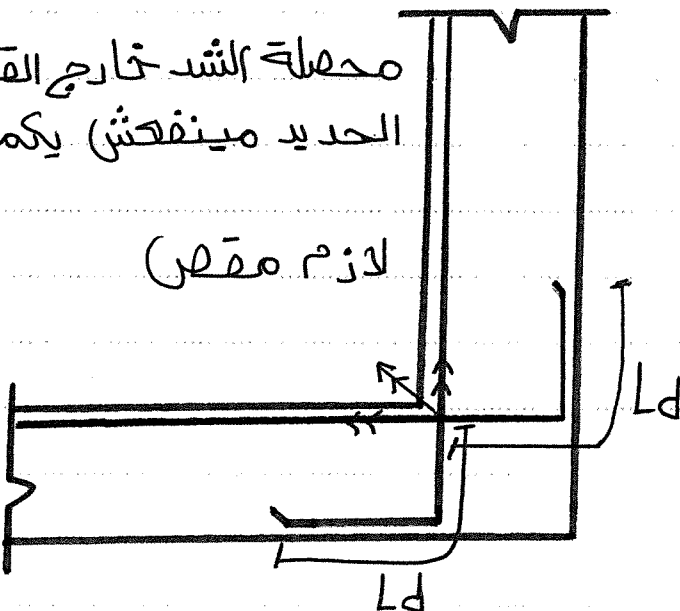 محصلة الشد خارج
الحديد مينفعش
لازم مقص
Ld
Ld